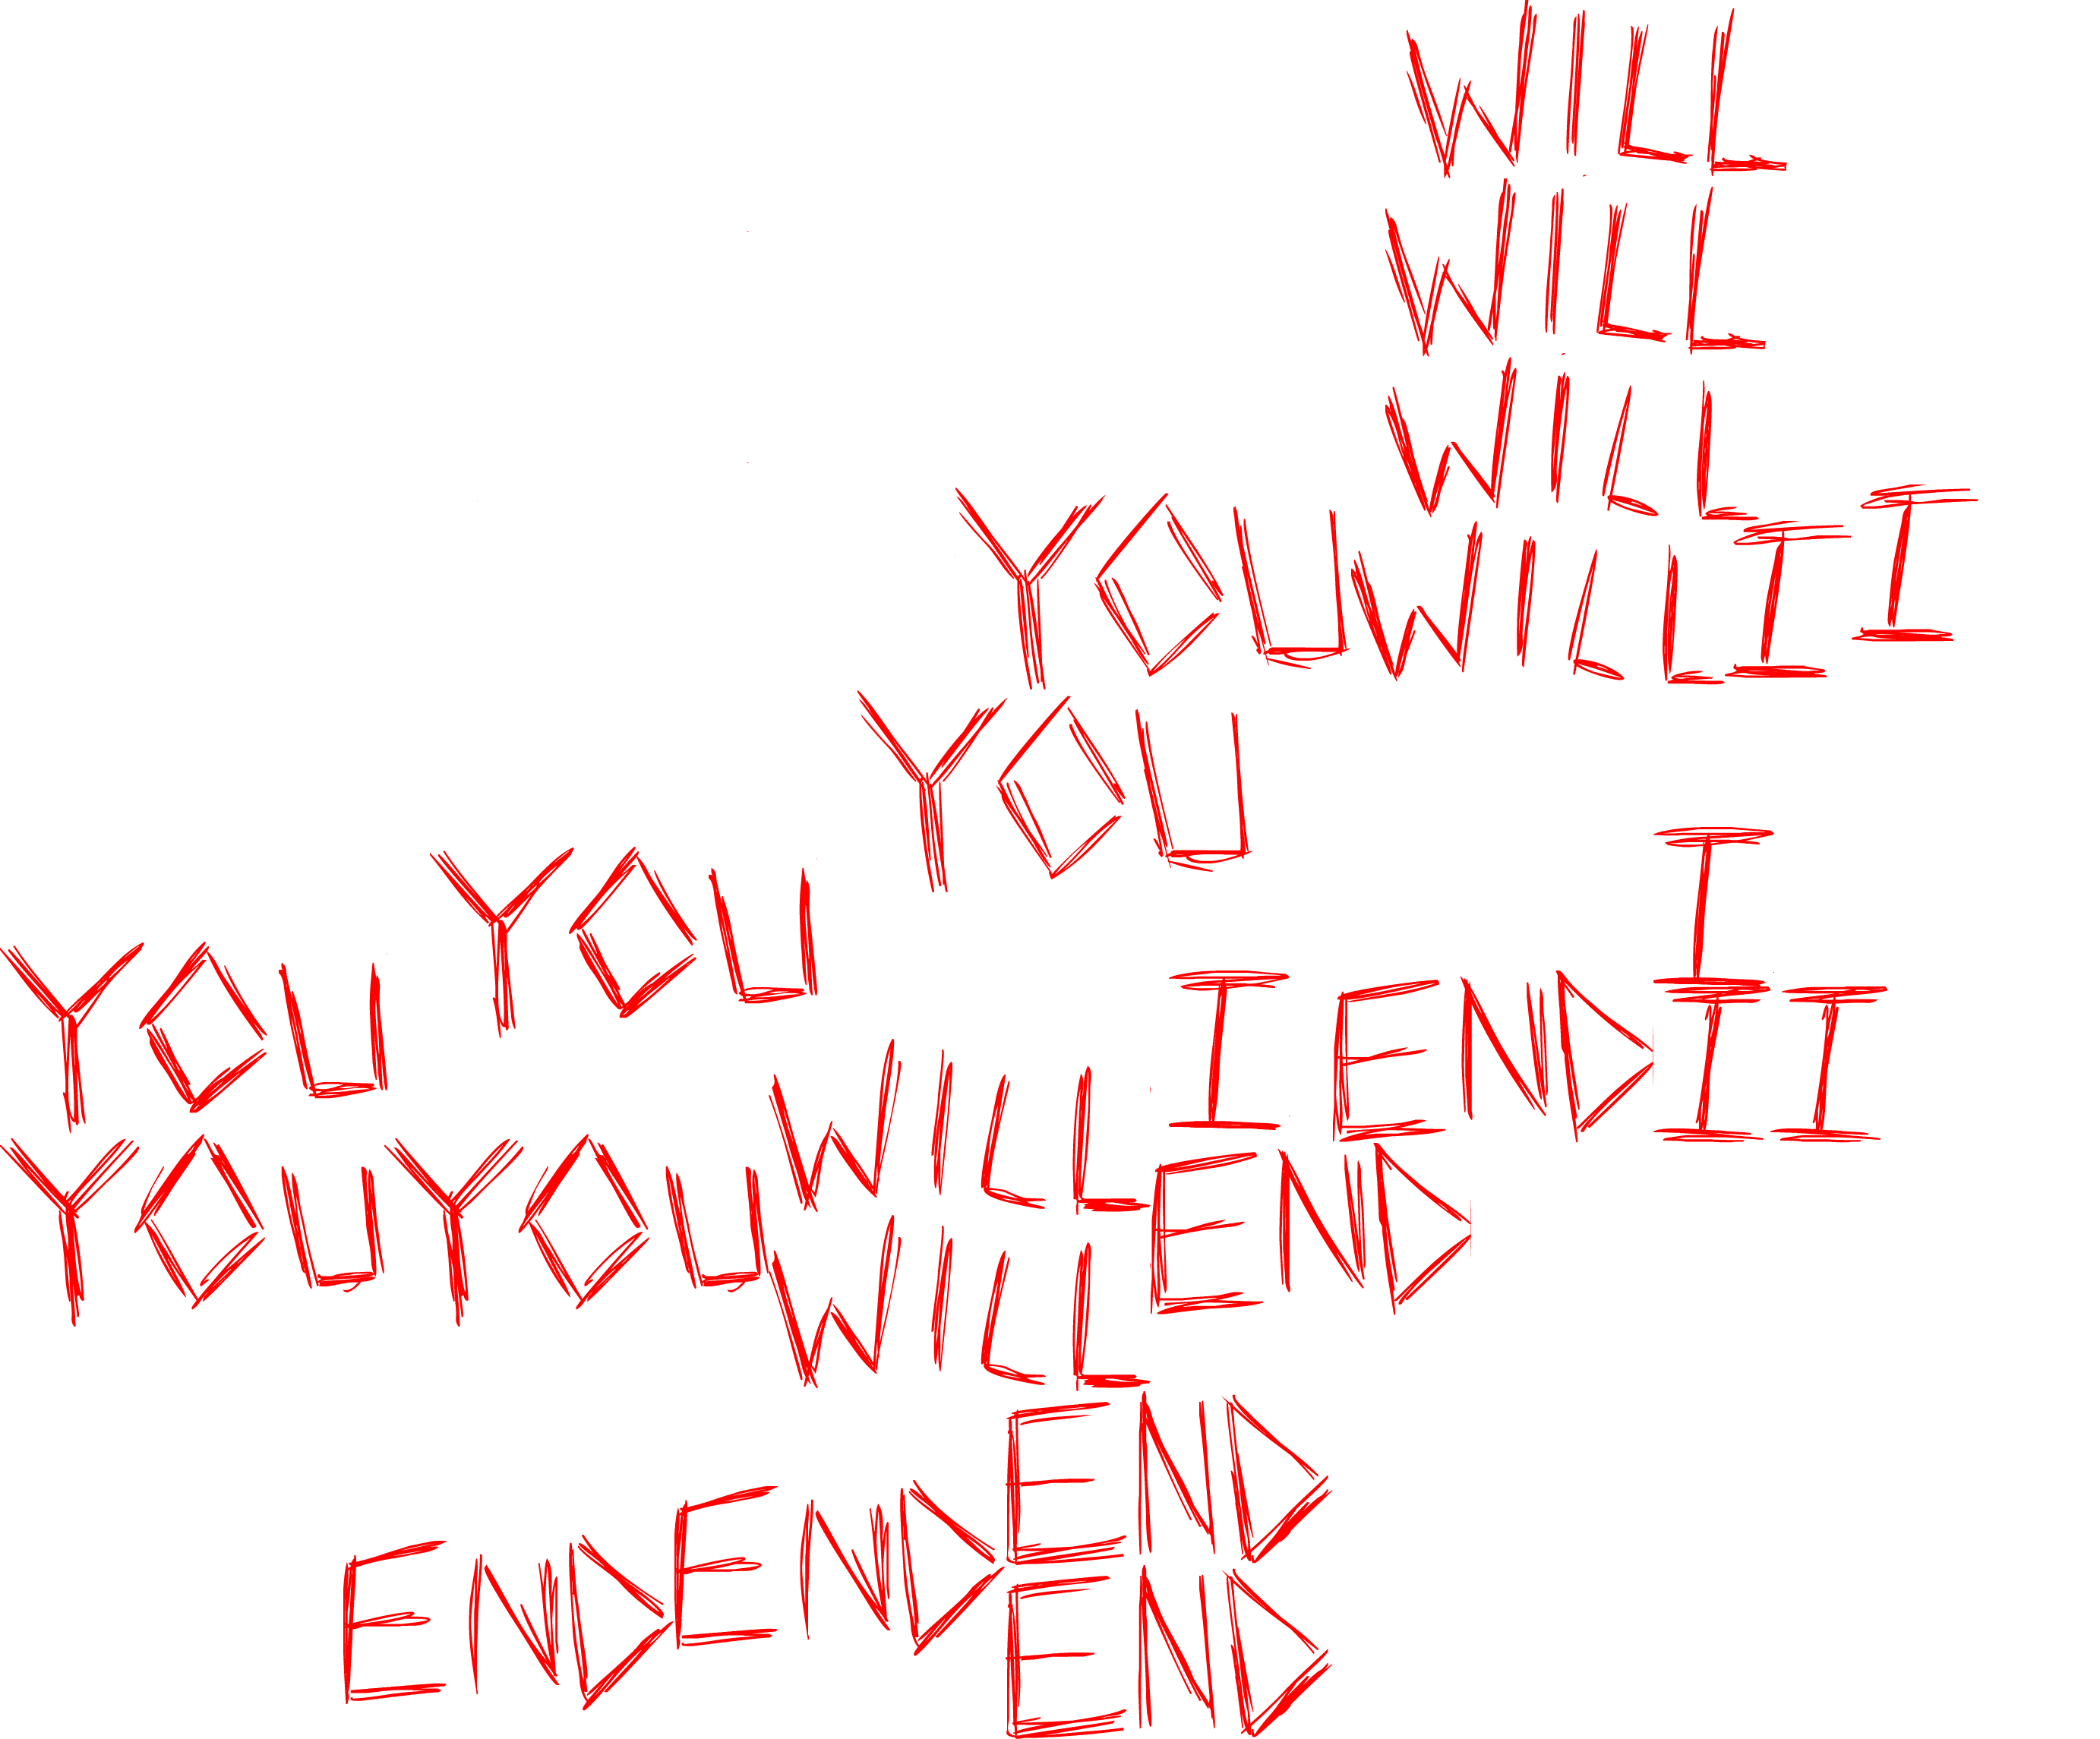 WILL
WILL
WILL
YOU WILL I I
YOU
I
YOU
YOU
I END I I
WILL
YOU YOU END
WILL
END
END END
END